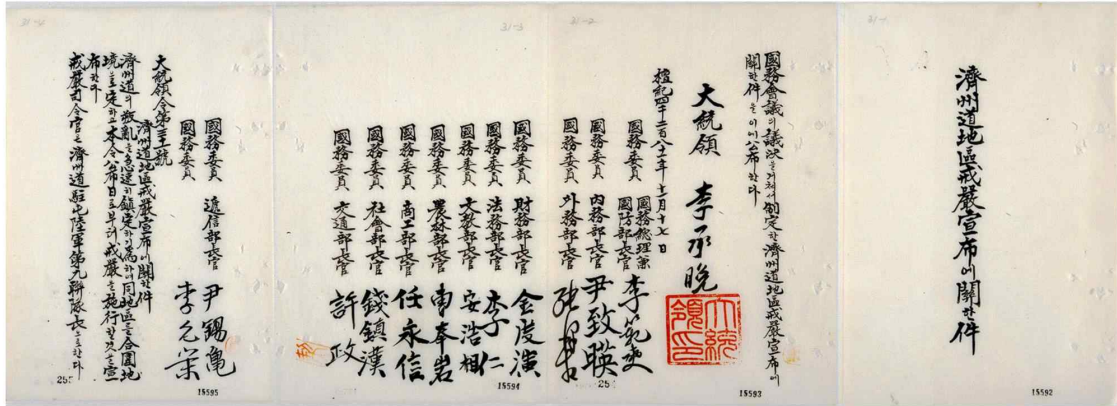 濟州道地區戒嚴宣布에關한件
國務會議의議決을거쳐서制定한濟州道地區戒嚴宣布에
關한件을이에公布한다
大統領 李承晩
大統領印
檀紀四千二百八十一年十一月十七日
國務委員 國務總理兼 國防部長官 李範奭
國務委員 內務部長官 尹致暎
國務委員 外務部長官 張澤相
國務委員 財務部長官 金度演
國務委員 法務部長官 李仁
國務委員 文敎部長官 安浩相
國務委員 農林部長官
國務委員 商工部長官 任永信
國務委員 社會部長官 錢鎭漢
國務委員 交通部長官 許政
國務委員 遞信部長官 尹錫龜
國務委員 李允榮
大統領令第三十一號
濟州道地區戒嚴宣布에關한件
濟州道의叛亂을急速히鎭定하기爲하여同地區를合圍地
境으로定하고本令公布日로부터戒嚴을施行할것을宣
布한다
戒嚴司令官은濟州道駐屯陸軍第九聯隊長으로한다
31-4
31-3
31-2
31-1
15595
15594
15593
15592